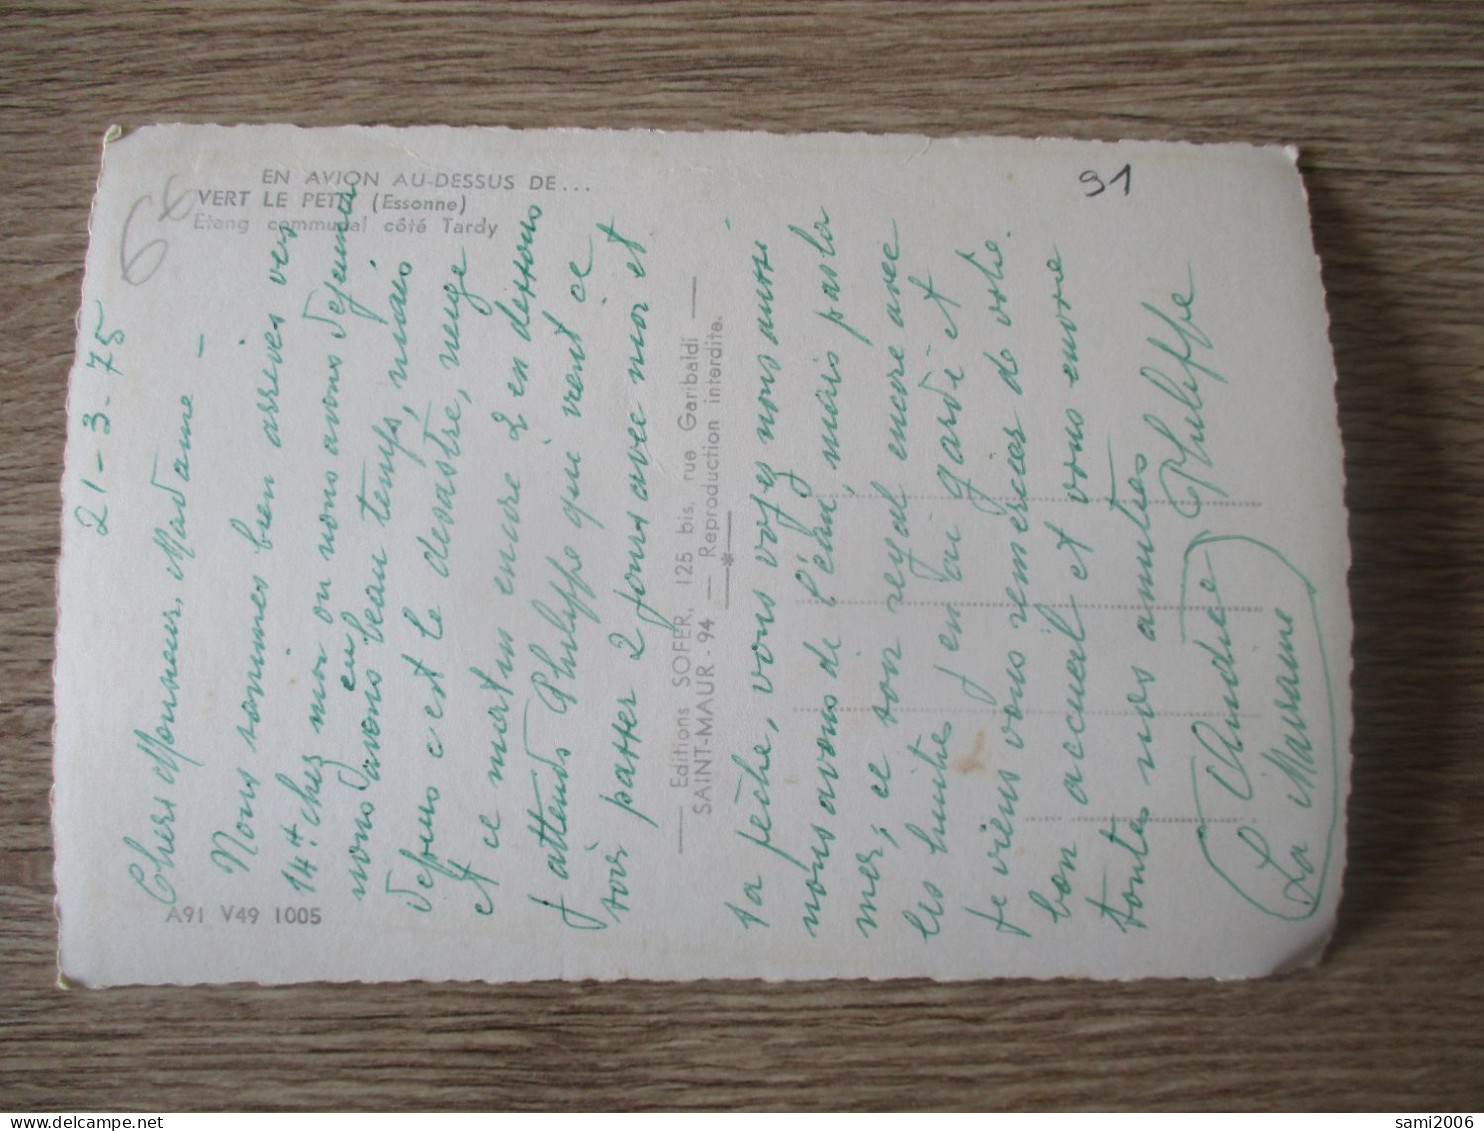 EN AVION AU-DESSUS DE...
VERT LE PETIT (Essonne)
Etang communal côté Tardy
91
66
21-3-75
Chers Monsieur, Madame –
Nous sommes bien arrivés vers
14 h chez moi ou nous avons déjeuner
nous avons eu beau temps, mais
depuis c'est le désastre, neige
et ce matin encore 2 en dessous
j'attends Philippe qui vient ce
soir passer 2 jours avec moi et
sa pèche, vous voyez nous aussi
nous avons de l'eau, mais pas la
mer, ce soir régal encore avec
les huitres j'en ai gardé et
je viens vous remercier de votre
bon accueil et vous envoie
toutes nos amitiés
Andrée Philippe
La Marraine
Editions SOFER, 125 bis, rue Garibaldi
SAINT-MAUR - 94 — Reproduction interdite.
A91 V49 1005
sami2006